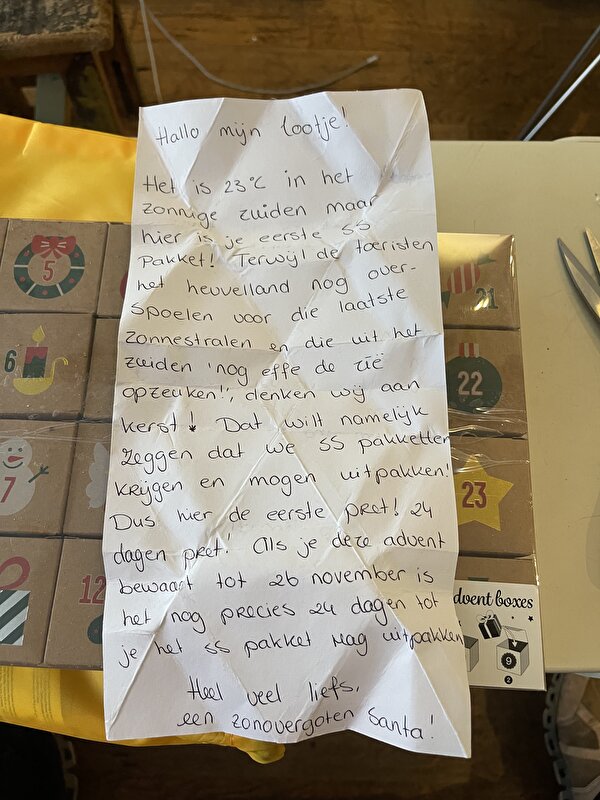 Hallo mijn lootje!
Het is 23°C in het
zonnige zuiden maar
hier is je eerste SS
pakket! Terwijl de toeristen
het heuvelland nog over-
spoelen voor die laatste
zonnestralen en die uit het
zuiden 'nog effe de zië
opzeuken!', denken wij aan
kerst! Dat wilt namelijk
zeggen dat we SS pakketten
krijgen en mogen uitpakken!
Dus hier de eerste pret! 24
dagen pret! Als je deze advent
bewaart tot 26 november is
het nog precies 24 dagen tot
je het SS pakket mag uitpakken
Heel veel liefs,
een zonovergoten Santa!
5
6
7
12
21
22
23
dvent boxes
9
2